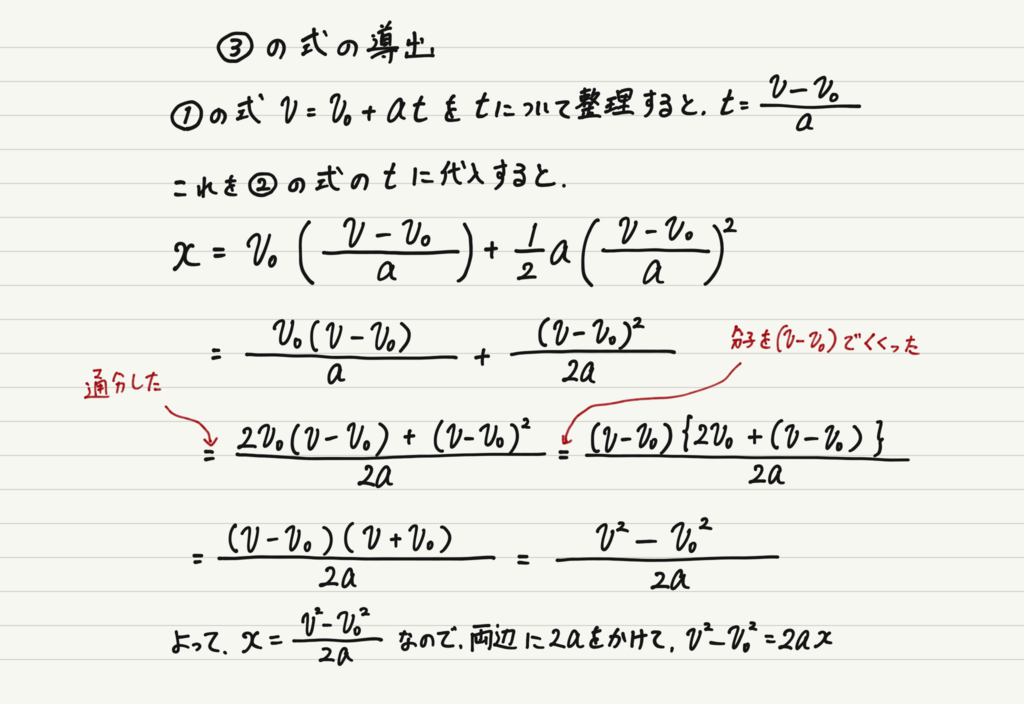 ③の式の導出
①の式 v = v₀ + at を t について整理すると, t = (v − v₀)/a
これを②の式の t に代入すると.
x = v₀ ((v − v₀)/a) + (1/2)a ((v − v₀)/a)²
= v₀(v − v₀)/a + (v − v₀)²/2a
分子を(v − v₀)でくくった
通分した
= {2v₀(v − v₀) + (v − v₀)²}/2a = (v − v₀){2v₀ + (v − v₀)}/2a
= (v − v₀)(v + v₀)/2a = (v² − v₀²)/2a
よって, x = (v² − v₀²)/2a なので, 両辺に2aをかけて, v² − v₀² = 2ax